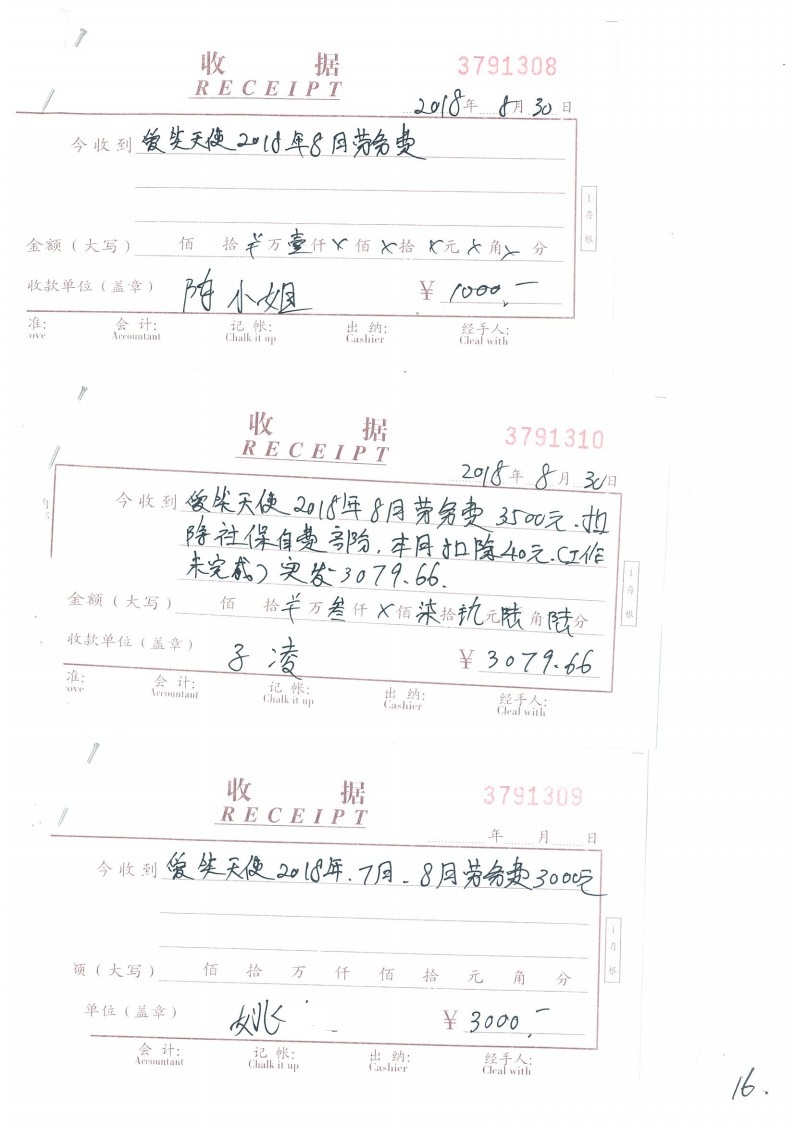 收 据
3791308
RECEIPT
2018年 8月 30日
今收到 爱笑天使2018年8月劳务费
1存根
金额（大写） 佰 拾 半万 壹仟 ×佰 ×拾 ×元 ×角 × 分
收款单位（盖章） 陈小姐 ¥ 1000.-
准: 会 计: 记 帐: 出 纳: 经手人:
ove Accountant Chalk it up Cashier Cleal with
收 据
3791310
RECEIPT
2018年 8月 30日
今收到 爱笑天使2018年8月劳务费3500元.扣
除社保自费部份,本月扣除40元.(工作
未完成)实发3079.66.
1存根
金额（大写） 佰 拾 半万 叁仟 ×佰 柒拾 玖元 陆角 陆分
收款单位（盖章） 子凌 ¥ 3079.66
准: 会 计: 记 帐: 出 纳: 经手人:
ove Accountant Chalk it up Cashier Cleal with
收 据
3791309
RECEIPT
年 月 日
今收到 爱笑天使2018年.7月-8月劳务费3000元
1存根
额（大写） 佰 拾 万 仟 佰 拾 元 角 分
单位（盖章） 姚 ¥ 3000.-
会 计: 记 帐: 出 纳: 经手人:
Accountant Chalk it up Cashier Cleal with
16.